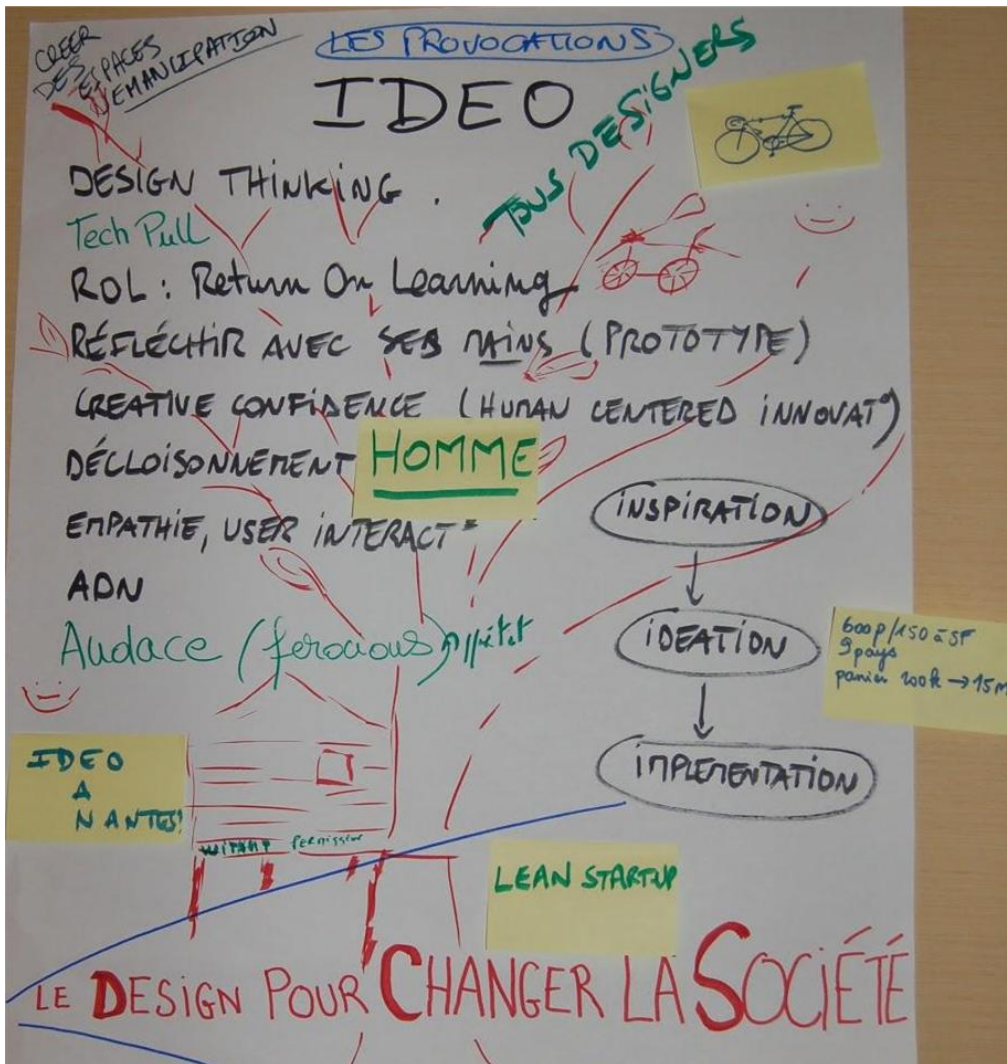 CREER
DES
ESPACES
D'EMANCIPATION
LES PROVOCATIONS
IDEO
TOUS DESIGNERS
DESIGN THINKING.
Tech Pull
ROL: Return On Learning
RÉFLÉCHIR AVEC SES MAINS (PROTOTYPE)
CREATIVE CONFIDENCE (HUMAN CENTERED INNOVAT°)
DÉCLOISONNEMENT
HOMME
EMPATHIE, USER INTERACT°
ADN
Audace (ferocious)
INSPIRATION
IDEATION
IMPLEMENTATION
600p/150 à SF
9 pays
panier 200k → 15M
IDEO
A
NANTES!
LEAN STARTUP
LE DESIGN POUR CHANGER LA SOCIÉTÉ